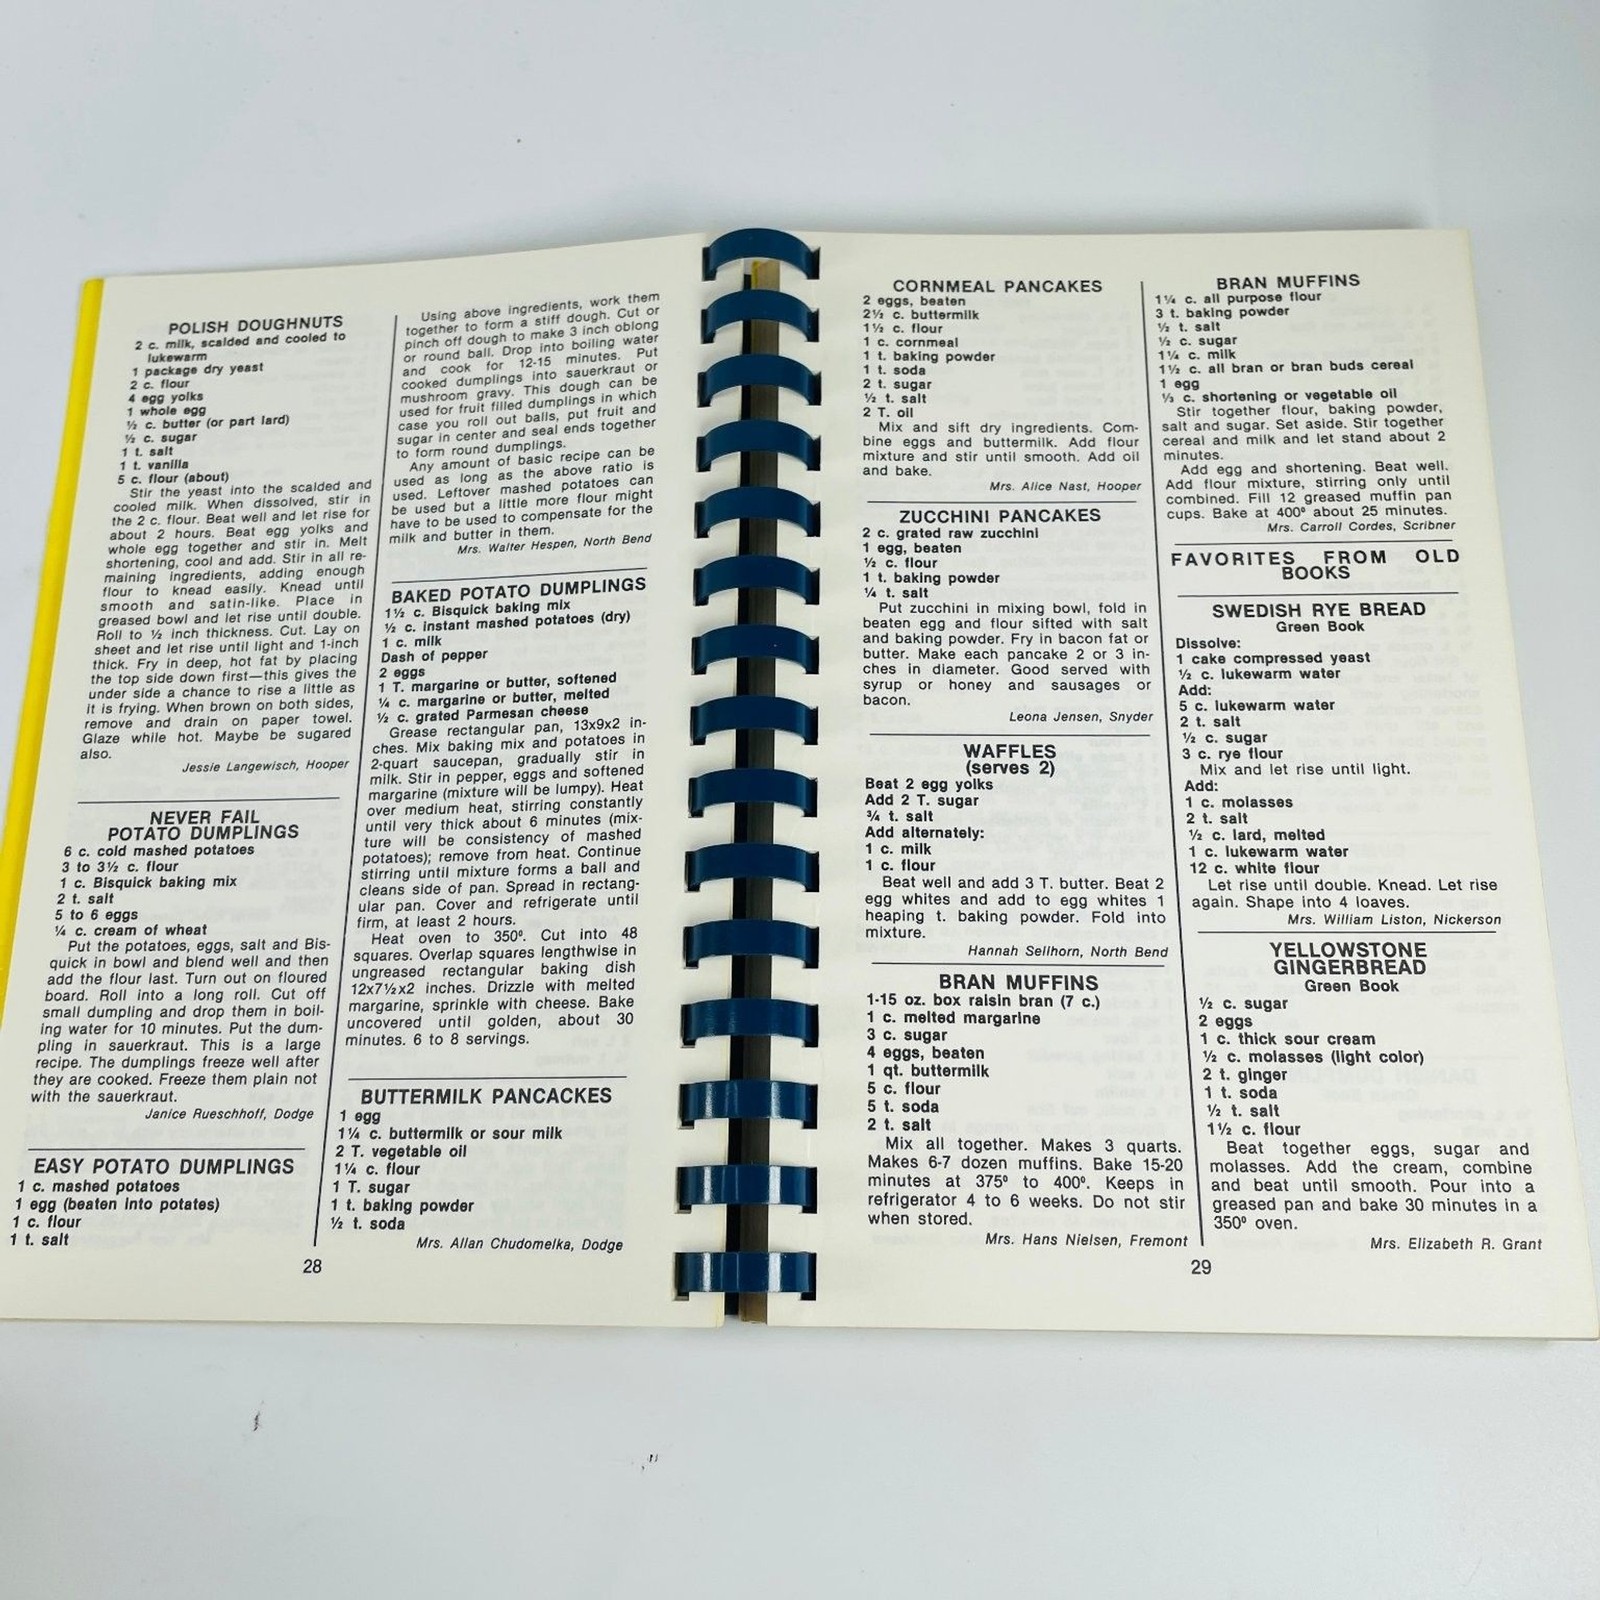 POLISH DOUGHNUTS
2 c. milk, scalded and cooled to
lukewarm
1 package dry yeast
2 c. flour
4 egg yolks
1 whole egg
½ c. butter (or part lard)
½ c. sugar
1 t. salt
1 t. vanilla
5 c. flour (about)
Stir the yeast into the scalded and
cooled milk. When dissolved, stir in
the 2 c. flour. Beat well and let rise for
about 2 hours. Beat egg yolks and
whole egg together and stir in. Melt
shortening, cool and add. Stir in all re-
maining ingredients, adding enough
flour to knead easily. Knead until
smooth and satin-like. Place in
greased bowl and let rise until double.
Roll to ½ inch thickness. Cut. Lay on
sheet and let rise until light and 1-inch
thick. Fry in deep, hot fat by placing
the top side down first—this gives the
under side a chance to rise a little as
it is frying. When brown on both sides,
remove and drain on paper towel.
Glaze while hot. Maybe be sugared
also.
Jessie Langewisch, Hooper
NEVER FAIL
POTATO DUMPLINGS
6 c. cold mashed potatoes
3 to 3½ c. flour
1 c. Bisquick baking mix
2 t. salt
5 to 6 eggs
¼ c. cream of wheat
Put the potatoes, eggs, salt and Bis-
quick in bowl and blend well and then
add the flour last. Turn out on floured
board. Roll into a long roll. Cut off
small dumpling and drop them in boil-
ing water for 10 minutes. Put the dum-
pling in sauerkraut. This is a large
recipe. The dumplings freeze well after
they are cooked. Freeze them plain not
with the sauerkraut.
Janice Rueschhoff, Dodge
EASY POTATO DUMPLINGS
1 c. mashed potatoes
1 egg (beaten into potates)
1 c. flour
1 t. salt
Using above ingredients, work them
together to form a stiff dough. Cut or
pinch off dough to make 3 inch oblong
or round ball. Drop into boiling water
and cook for 12-15 minutes. Put
cooked dumplings into sauerkraut or
mushroom gravy. This dough can be
used for fruit filled dumplings in which
case you roll out balls, put fruit and
sugar in center and seal ends together
to form round dumplings.
Any amount of basic recipe can be
used as long as the above ratio is
used. Leftover mashed potatoes can
be used but a little more flour might
have to be used to compensate for the
milk and butter in them.
Mrs. Walter Hespen, North Bend
BAKED POTATO DUMPLINGS
1½ c. Bisquick baking mix
½ c. instant mashed potatoes (dry)
1 c. milk
Dash of pepper
2 eggs
1 T. margarine or butter, softened
¼ c. margarine or butter, melted
½ c. grated Parmesan cheese
Grease rectangular pan, 13x9x2 in-
ches. Mix baking mix and potatoes in
2-quart saucepan, gradually stir in
milk. Stir in pepper, eggs and softened
margarine (mixture will be lumpy). Heat
over medium heat, stirring constantly
until very thick about 6 minutes (mix-
ture will be consistency of mashed
potatoes); remove from heat. Continue
stirring until mixture forms a ball and
cleans side of pan. Spread in rectang-
ular pan. Cover and refrigerate until
firm, at least 2 hours.
Heat oven to 350º. Cut into 48
squares. Overlap squares lengthwise in
ungreased rectangular baking dish
12x7½x2 inches. Drizzle with melted
margarine, sprinkle with cheese. Bake
uncovered until golden, about 30
minutes. 6 to 8 servings.
BUTTERMILK PANCACKES
1 egg
1¼ c. buttermilk or sour milk
2 T. vegetable oil
1¼ c. flour
1 T. sugar
1 t. baking powder
½ t. soda
Mrs. Allan Chudomelka, Dodge
28
CORNMEAL PANCAKES
2 eggs, beaten
2½ c. buttermilk
1½ c. flour
1 c. cornmeal
1 t. baking powder
1 t. soda
2 t. sugar
½ t. salt
2 T. oil
Mix and sift dry ingredients. Com-
bine eggs and buttermilk. Add flour
mixture and stir until smooth. Add oil
and bake.
Mrs. Alice Nast, Hooper
ZUCCHINI PANCAKES
2 c. grated raw zucchini
1 egg, beaten
½ c. flour
1 t. baking powder
¼ t. salt
Put zucchini in mixing bowl, fold in
beaten egg and flour sifted with salt
and baking powder. Fry in bacon fat or
butter. Make each pancake 2 or 3 in-
ches in diameter. Good served with
syrup or honey and sausages or
bacon.
Leona Jensen, Snyder
WAFFLES
(serves 2)
Beat 2 egg yolks
Add 2 T. sugar
¾ t. salt
Add alternately:
1 c. milk
1 c. flour
Beat well and add 3 T. butter. Beat 2
egg whites and add to egg whites 1
heaping t. baking powder. Fold into
mixture.
Hannah Sellhorn, North Bend
BRAN MUFFINS
1-15 oz. box raisin bran (7 c.)
1 c. melted margarine
3 c. sugar
4 eggs, beaten
1 qt. buttermilk
5 c. flour
5 t. soda
2 t. salt
Mix all together. Makes 3 quarts.
Makes 6-7 dozen muffins. Bake 15-20
minutes at 375º to 400º. Keeps in
refrigerator 4 to 6 weeks. Do not stir
when stored.
Mrs. Hans Nielsen, Fremont
BRAN MUFFINS
1¼ c. all purpose flour
3 t. baking powder
½ t. salt
½ c. sugar
1¼ c. milk
1½ c. all bran or bran buds cereal
1 egg
⅓ c. shortening or vegetable oil
Stir together flour, baking powder,
salt and sugar. Set aside. Stir together
cereal and milk and let stand about 2
minutes.
Add egg and shortening. Beat well.
Add flour mixture, stirring only until
combined. Fill 12 greased muffin pan
cups. Bake at 400º about 25 minutes.
Mrs. Carroll Cordes, Scribner
FAVORITES FROM OLD
BOOKS
SWEDISH RYE BREAD
Green Book
Dissolve:
1 cake compressed yeast
½ c. lukewarm water
Add:
5 c. lukewarm water
2 t. salt
½ c. sugar
3 c. rye flour
Mix and let rise until light.
Add:
1 c. molasses
2 t. salt
½ c. lard, melted
1 c. lukewarm water
12 c. white flour
Let rise until double. Knead. Let rise
again. Shape into 4 loaves.
Mrs. William Liston, Nickerson
YELLOWSTONE
GINGERBREAD
Green Book
½ c. sugar
2 eggs
1 c. thick sour cream
½ c. molasses (light color)
2 t. ginger
1 t. soda
½ t. salt
1½ c. flour
Beat together eggs, sugar and
molasses. Add the cream, combine
and beat until smooth. Pour into a
greased pan and bake 30 minutes in a
350º oven.
Mrs. Elizabeth R. Grant
29